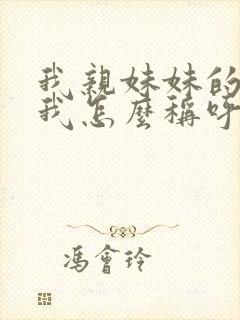 我親妹妹的
我怎麼稱呼
馮會玲